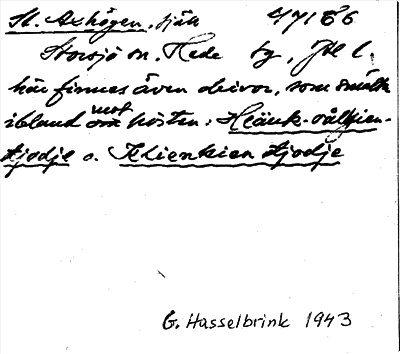 St. Axhögen, fjäll 4/7166
Storsjö sn, Hede tg, Jtl l.
här finnes även drivor, som smälta
ibland om mot hösten: Hleänk-våltjien-
tjodje o. Klienkien tjodje
G. Hasselbrink 1943